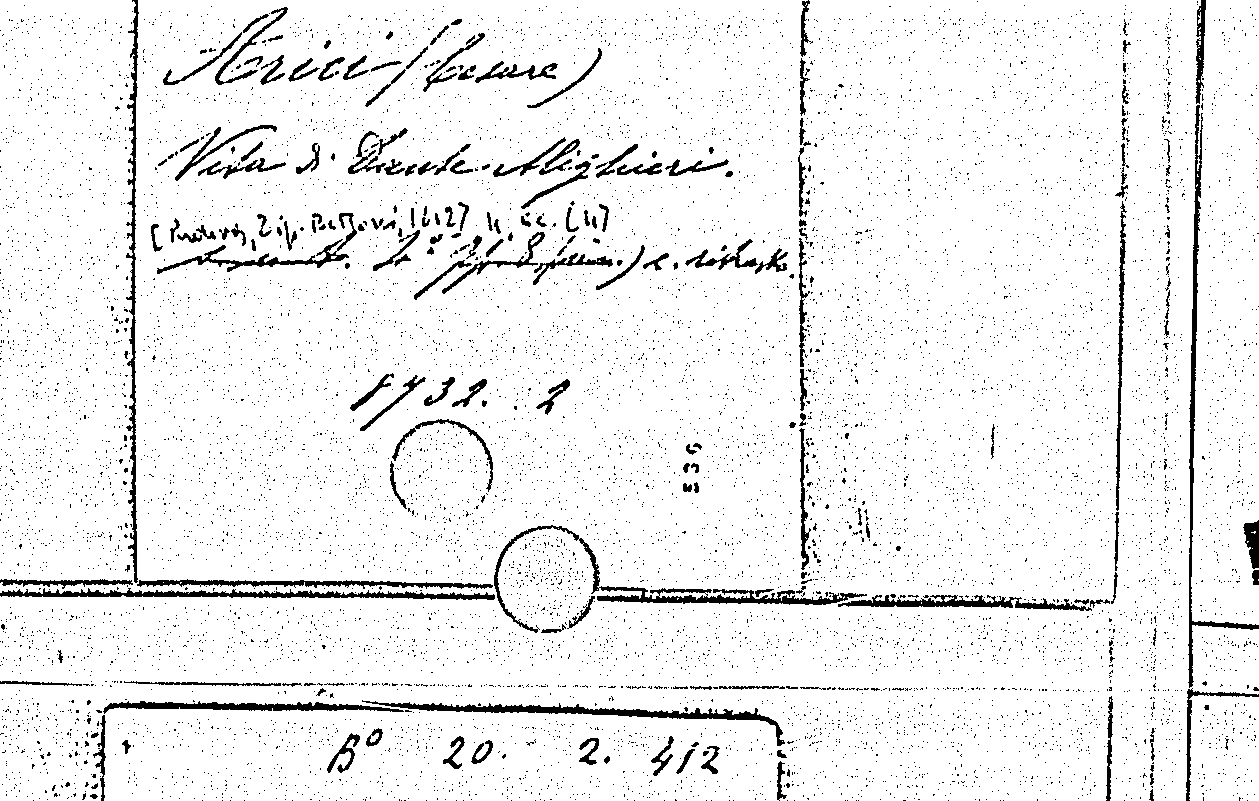 Arici (Cesare)
Vita di Dante Alighieri.
[Padova, Tip. Bettoni, 1812] 4, cc. [4]
in 8° c. ritratto.
8732. 2
B° 20. 2. 412